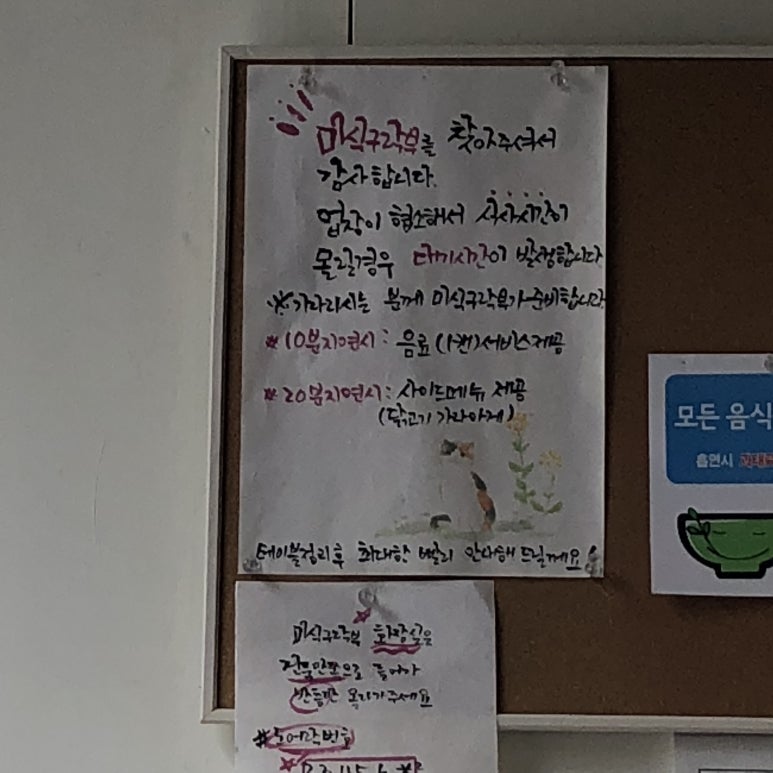 미식구락부를 찾아주셔서
감사합니다.
업장이 협소해서 식사시간이
몰릴경우 대기시간이 발생합니다
※기다리시는 분께 미식구락부가 준비합니다
* 10분지연시 : 음료(1캔)서비스제공
* 20분지연시 : 사이드메뉴 제공
(닭고기 가라아게)
테이블정리후 최대한 빨리 안내해 드릴께요!
미식구락부 화장실은
건물안쪽으로 들어가
반층만 올라가주세요
모든 음식
흡연시 과태료